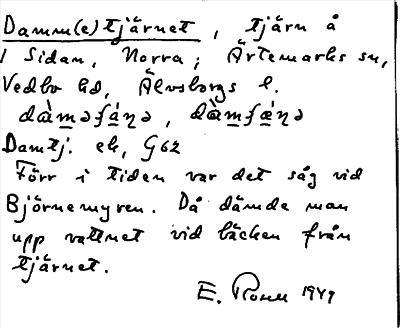 Damm(e)tjärnet, tjärn å
1 Sidan, Norra; Ärtemarks sn,
Vedbo hd, Älvsborgs l.
dàmə fǽn̥ə, dàm fǽn̥ə
Damtj. ek, G62
Förr i tiden var det såg vid
Björnemyren. Då dämde man
upp vattnet vid bäcken från
tjärnet.
E. 1949